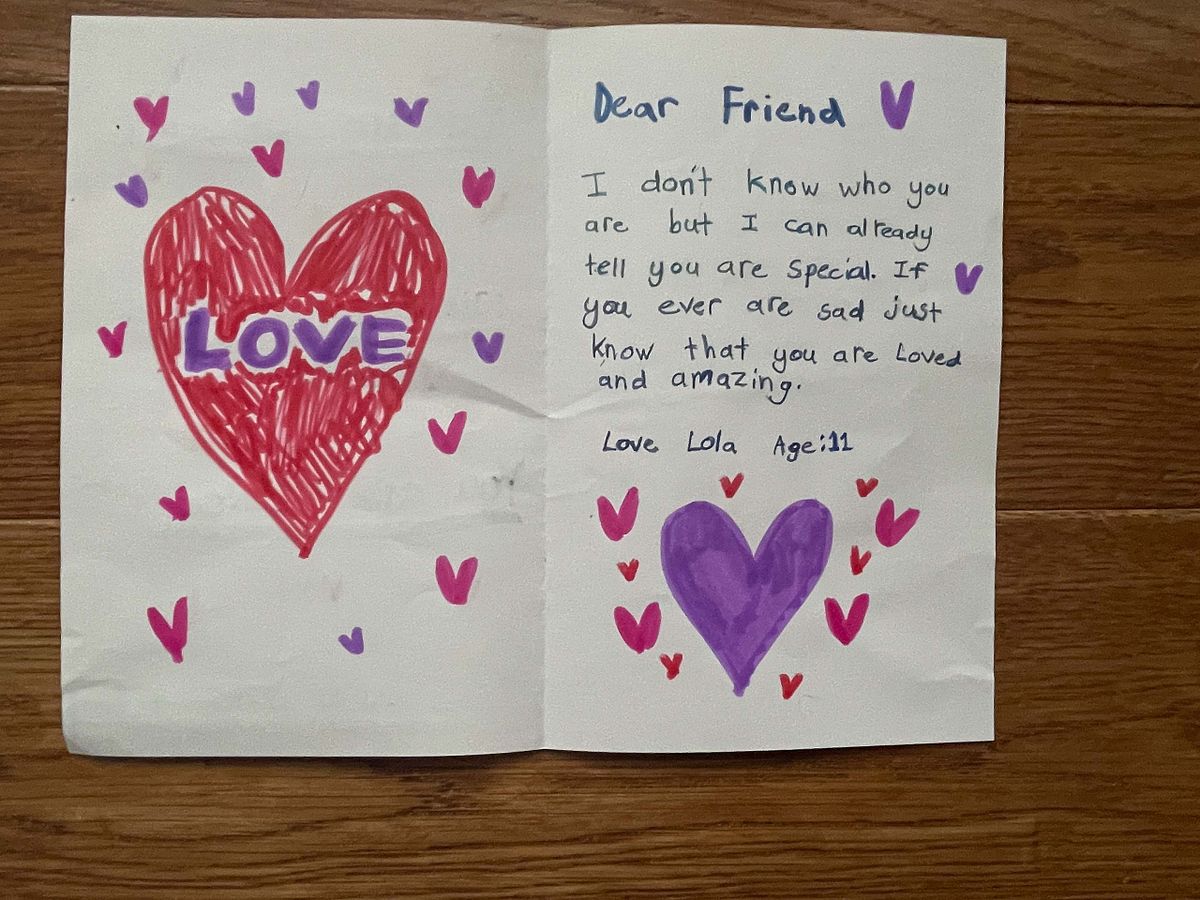 LOVE
Dear Friend
I don't know who you
are but I can already
tell you are special. If
you ever are sad just
know that you are Loved
and amazing.
Love Lola Age:11